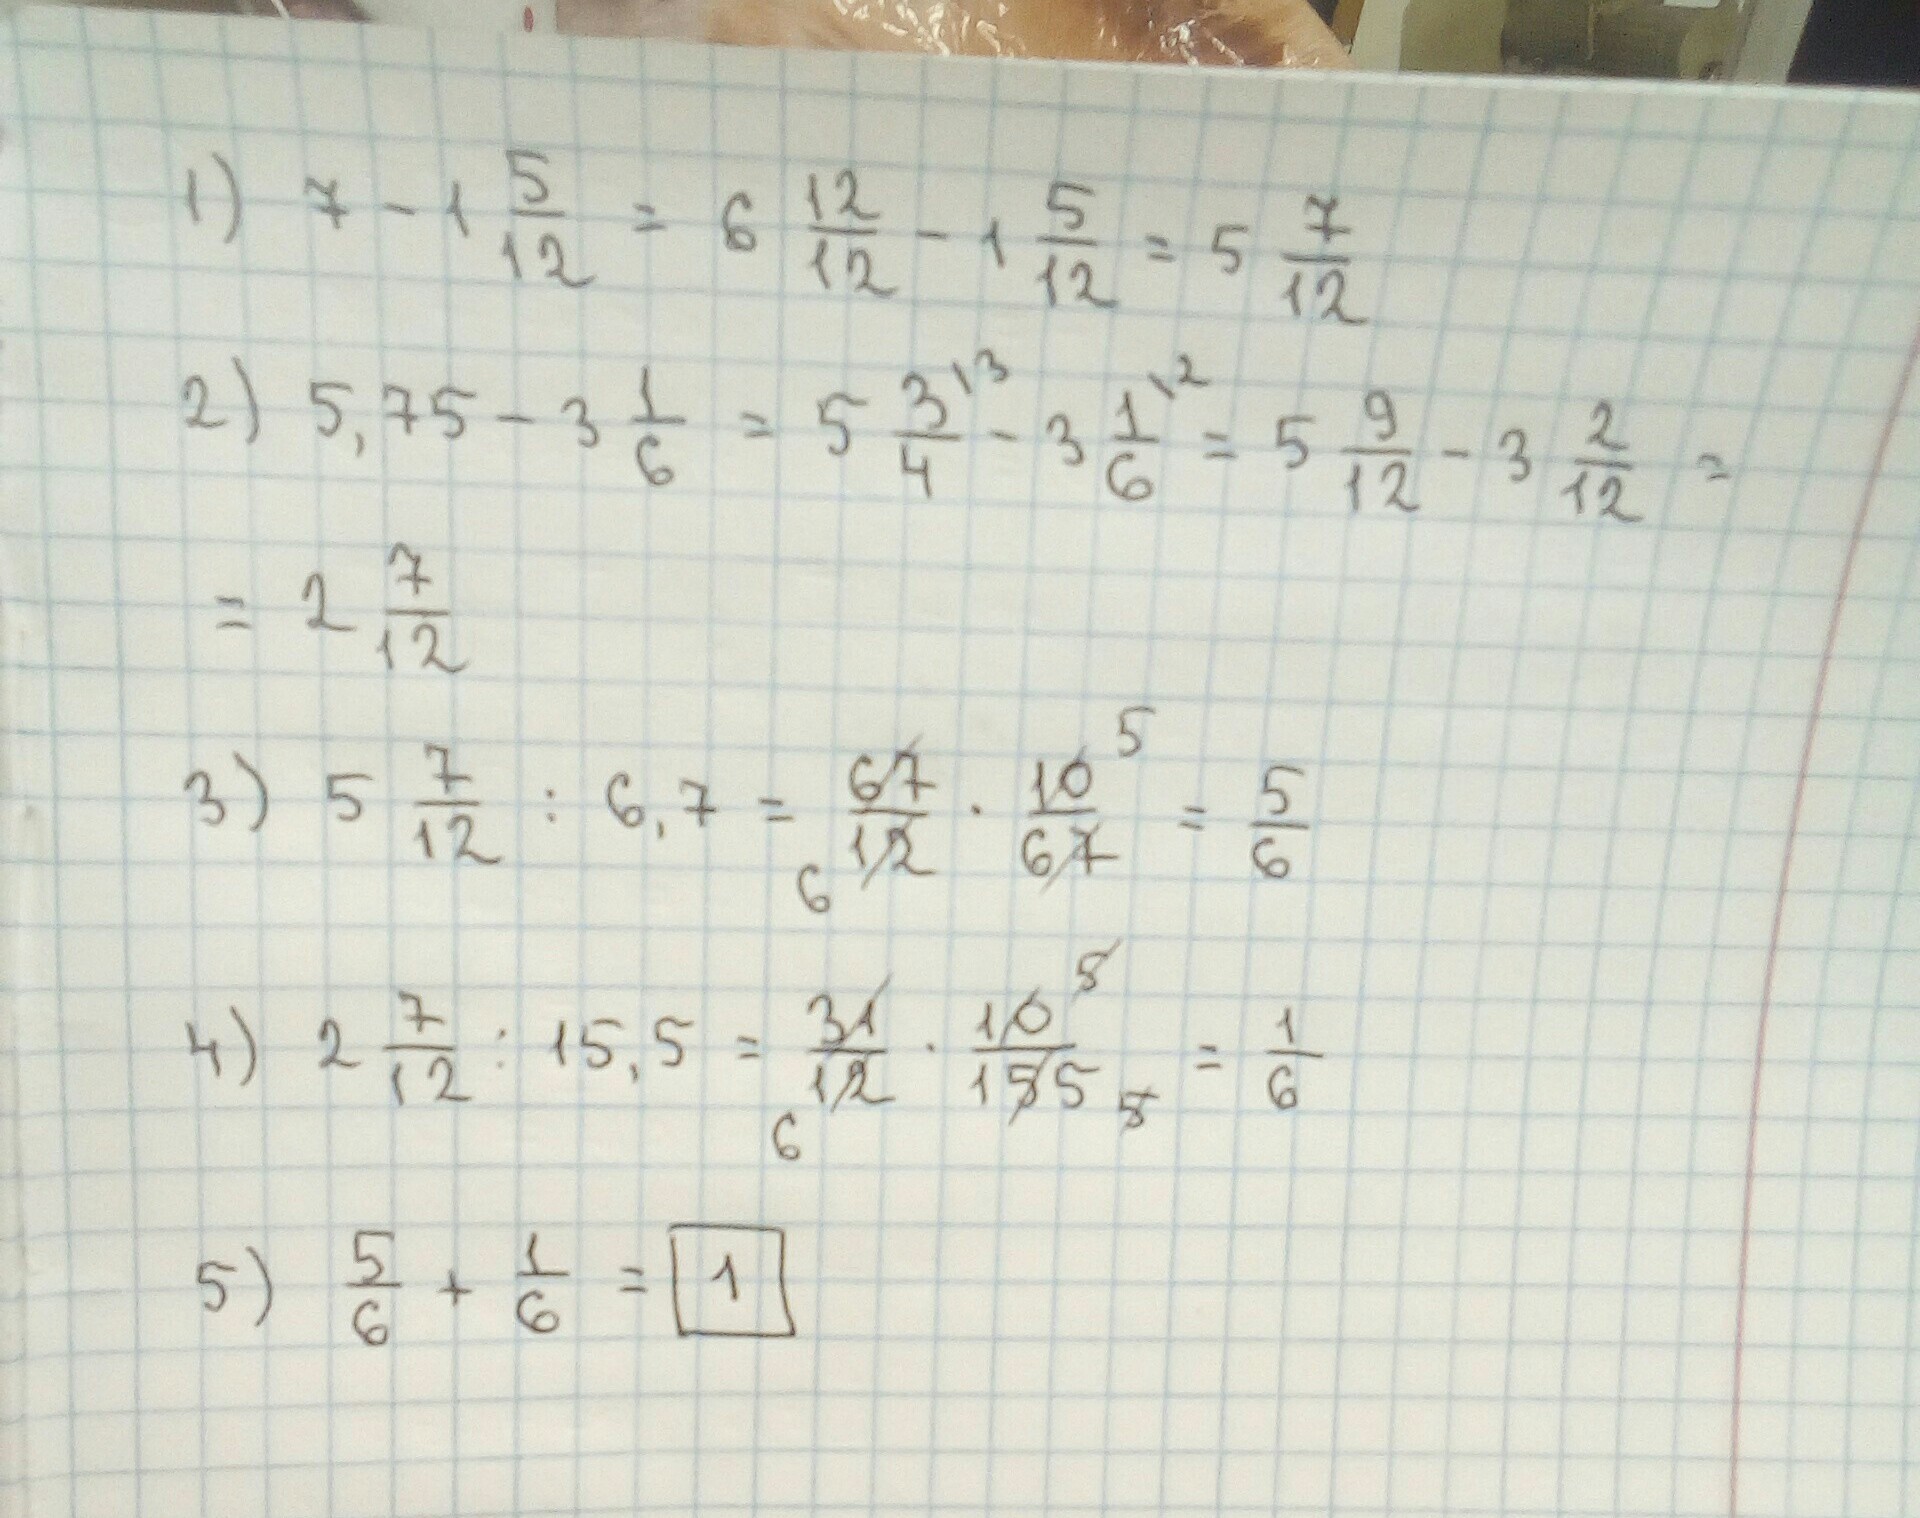 1) 7 - 1 5/12 = 6 12/12 - 1 5/12 = 5 7/12
2) 5,75 - 3 1/6 = 5 3/4 \3 - 3 1/6 \2 = 5 9/12 - 3 2/12 =
= 2 7/12
3) 5 7/12 : 6,7 = 67/12 6 · 10 5/67 = 5/6
4) 2 7/12 : 15,5 = 31/12 6 · 10 5/155 5 = 1/6
5) 5/6 + 1/6 = 1